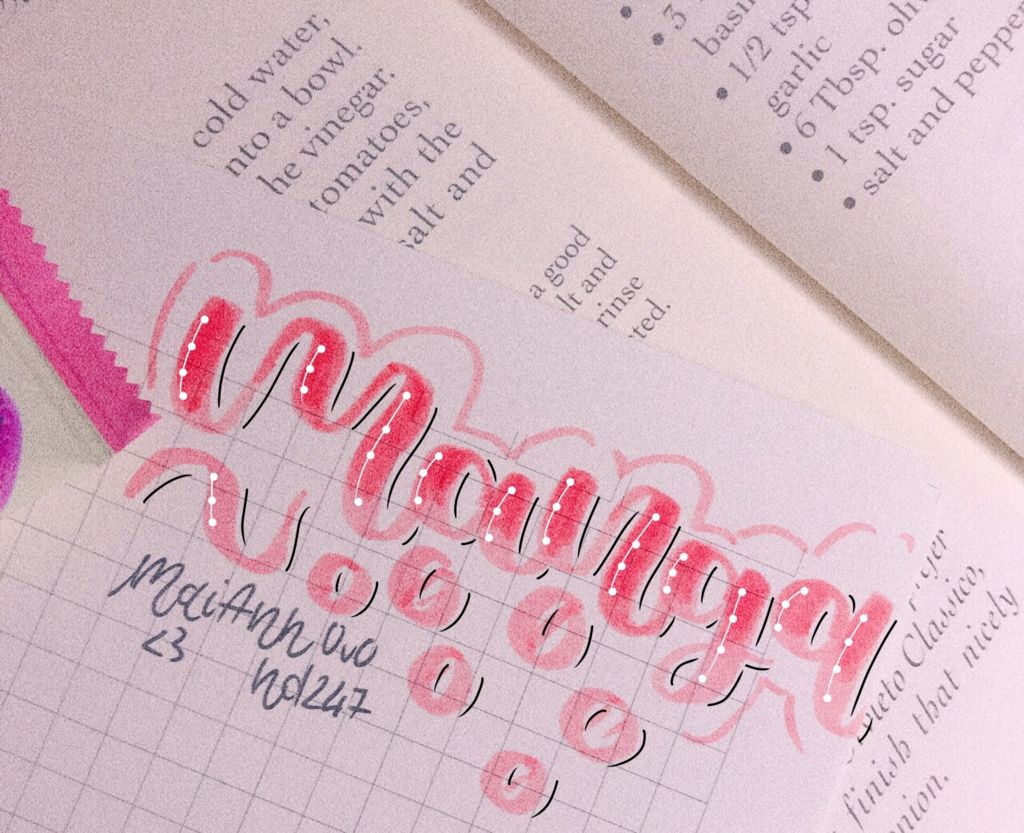 cold water,
nto a bowl.
he vinegar.
tomatoes,
with the
salt and
a good
lt and
rinse
ted.
• 3
basi
• 1/2 tsp
garlic
• 6 Tbsp. oliv
• 1 tsp. sugar
• salt and peppe
MaiAnh OvO
<3 hd247
eto Classico,
finish that nicely
nion.